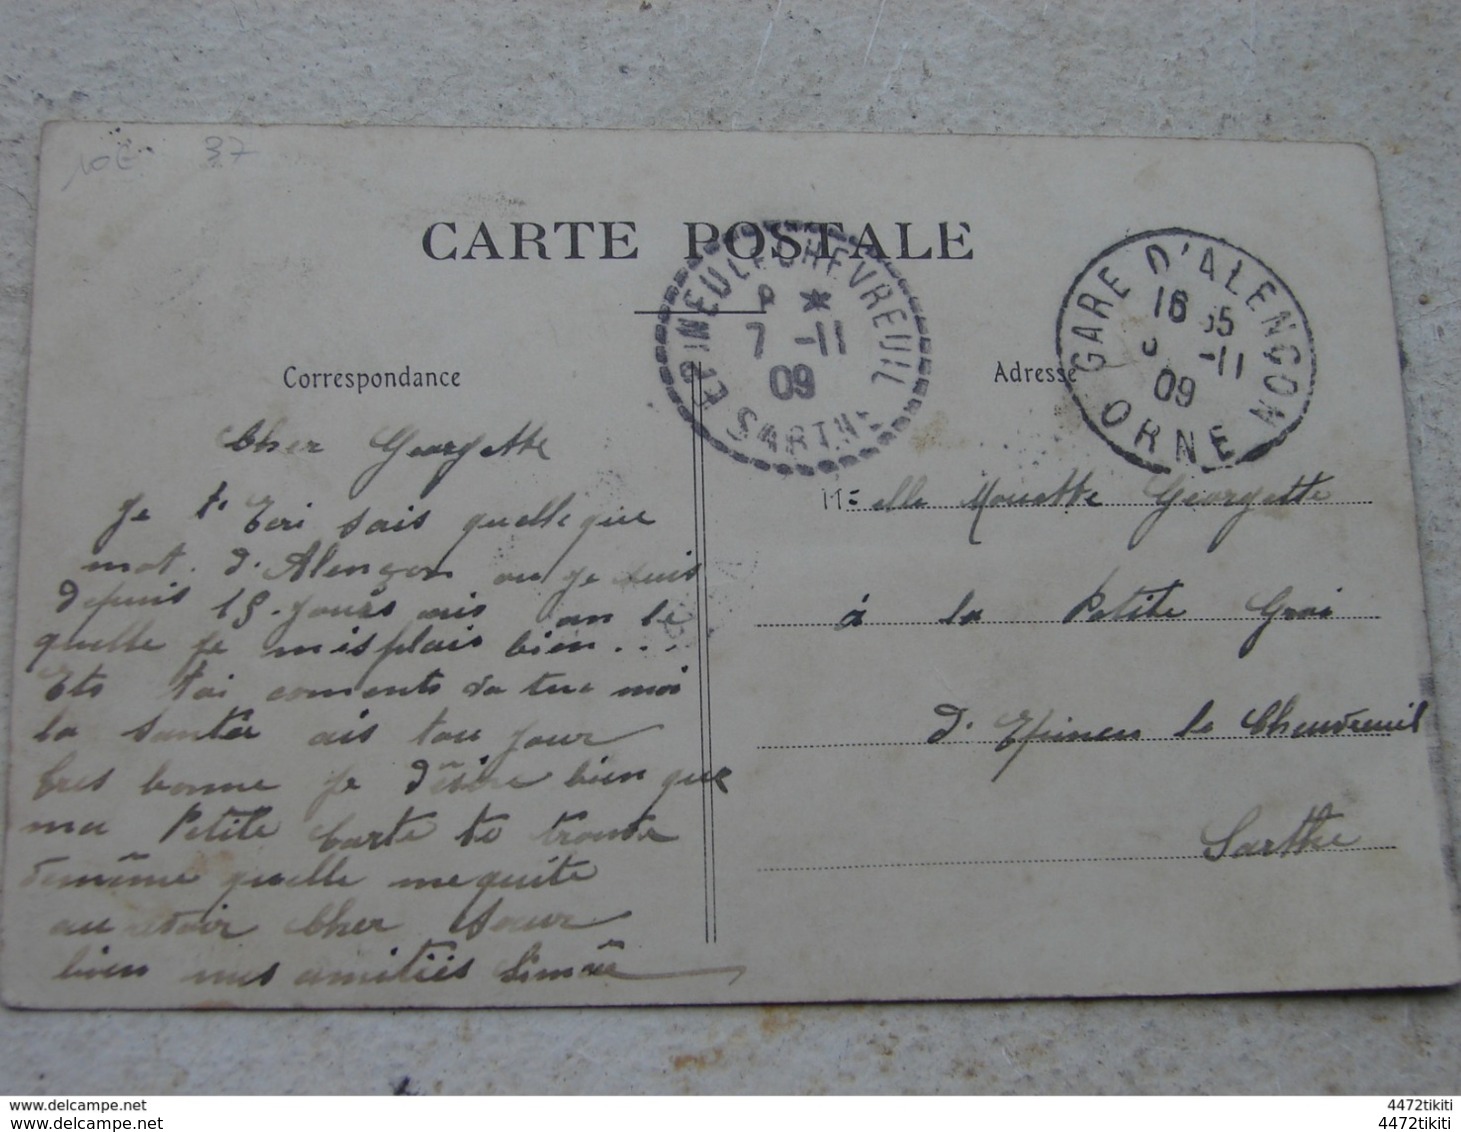 10€ 37
CARTE POSTALE
EPINEU LE CHEVREUIL
7 -11
09
SARTHE
GARE D'ALENCON
16 55
-11
09
ORNE
Correspondance
Adresse
Cher Georgette
Je t'Ecri sais quelleque
mot. d'Alençon ou je suis
depuis 15. jours ais an le
quelle je misplais bien...
Ets tai coments va tue moi
la santée ais tou jour
tres bonne je désire bien que
ma Petite Carte te trouve
demême quelle mequite
au revoir Cher Sœur
bien mes amitiés
Melle Mouette Georgette
à la Petite
d'Epineu le Chevreuil
Sarthe
www.delcampe.net 4472tikiti
www.delcampe.net 4472tikiti